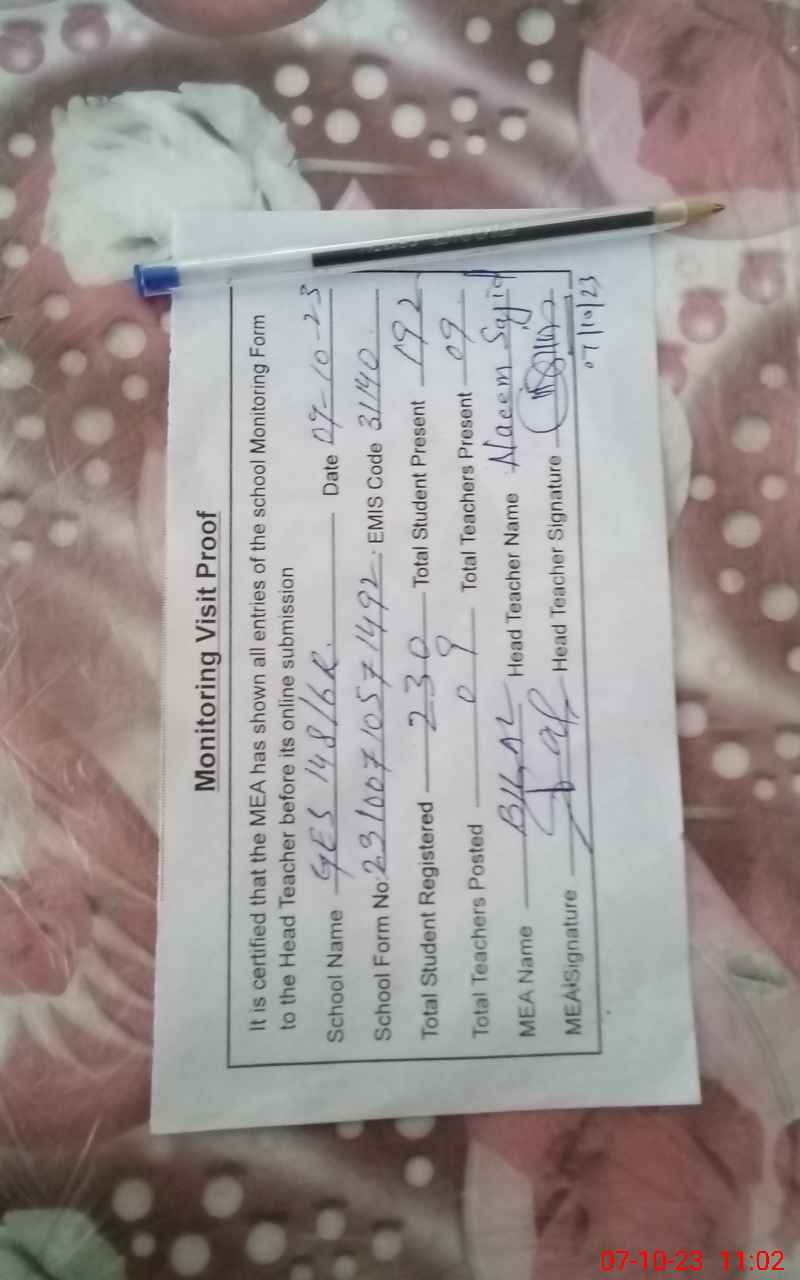 Monitoring Visit Proof
It is certified that the MEA has shown all entries of the school Monitoring Form
to the Head Teacher before its online submission
School Name GES 148/6R. Date 07-10-23
School Form No: 23100710571492. EMIS Code 31140.
Total Student Registered 230 Total Student Present 192
Total Teachers Posted 09 Total Teachers Present 09
MEA Name BILAL Head Teacher Name Naeem Sajid
MEA Signature Head Teacher Signature
07/10/23
07-10-23 11:02